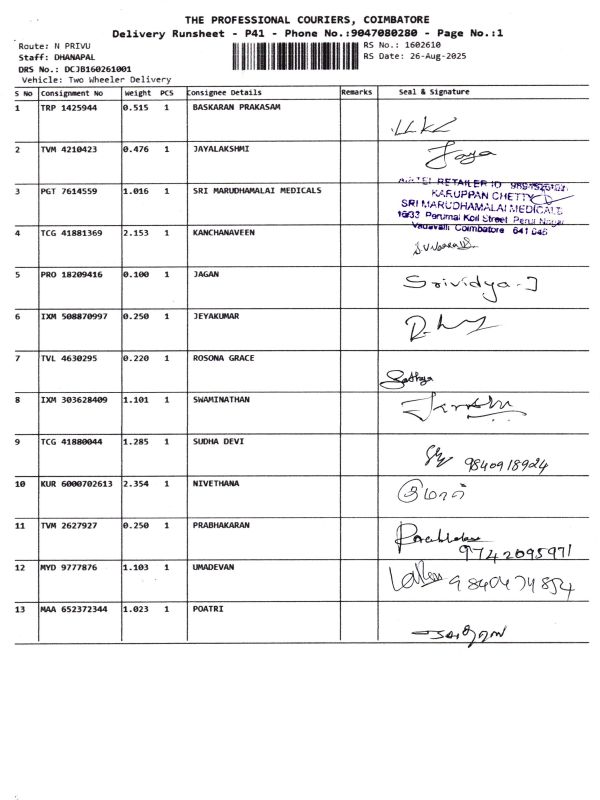 THE PROFESSIONAL COURIERS, COIMBATORE
Delivery Runsheet - P41 - Phone No.:9047080280 - Page No.:1
Route: N PRIVU RS No.: 1602610
Staff: DHANAPAL RS Date: 26-Aug-2025
DRS No.: DCJB160261001
Vehicle: Two Wheeler Delivery
S No Consignment No Weight PCS Consignee Details Remarks Seal & Signature
1 TRP 1425944 0.515 1 BASKARAN PRAKASAM
2 TVM 4210423 0.476 1 JAYALAKSHMI Jaya
3 PGT 7614559 1.016 1 SRI MARUDHAMALAI MEDICALS
AIRTEL RETAILER ID
KARUPPAN CHETTY
SRI MARUDHAMALAI MEDICALS
16/33 Perumal Koil Street Perur Nagar
Vadavalli Coimbatore 641 046
4 TCG 41881369 2.153 1 KANCHANAVEEN
5 PRO 18209416 0.100 1 JAGAN Srividya.J
6 IXM 508870997 0.250 1 JEYAKUMAR
7 TVL 4630295 0.220 1 ROSONA GRACE Sathya
8 IXM 303628409 1.101 1 SWAMINATHAN
9 TCG 41880044 1.285 1 SUDHA DEVI 9840918924
10 KUR 6000702613 2.354 1 NIVETHANA
11 TVM 2627927 0.250 1 PRABHAKARAN Prabhakar
9742095971
12 MYD 9777876 1.103 1 UMADEVAN 9840474854
13 MAA 652372344 1.023 1 POATRI